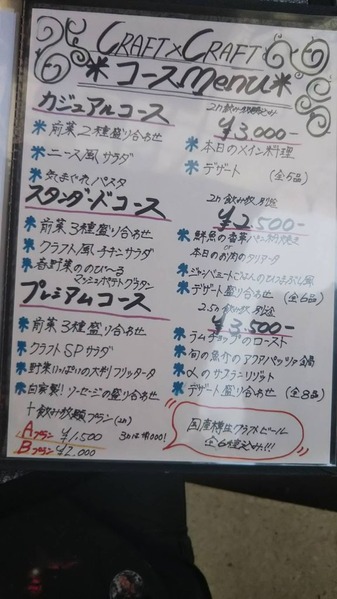 CRAFT×CRAFT
*コースMenu*
カジュアルコース
¥3,000-
*前菜2種盛り合わせ
*本日のメイン料理
*ニース風サラダ
*デザート (全5品)
*気まぐれパスタ
スタンダードコース
2h 飲み放 別途
¥2,500-
*前菜3種盛り合わせ
*鮮魚の香草パン粉焼き
or
本日のお肉のタリアータ
*クラフト風チキンサラダ
*春野菜ののび〜る
マッシュポテトグラタン
*デザート盛り合わせ (全6品)
プレミアムコース
2.5h 飲み放 別途
¥3,500-
*前菜3種盛り合わせ
*ラムチョップのロースト
*クラフトSPサラダ
*旬の魚介のアクアパッツァ
*野菜いっぱいの大判フリッタータ
*〆のサフランリゾット
*自家製!ソーセージの盛り合わせ
*デザート盛り合わせ (全8品)
+飲み放題プラン(2h)
Aプラン ¥1,500
Bプラン ¥2,000
国産樽生クラフトビール
全6種込み!!!